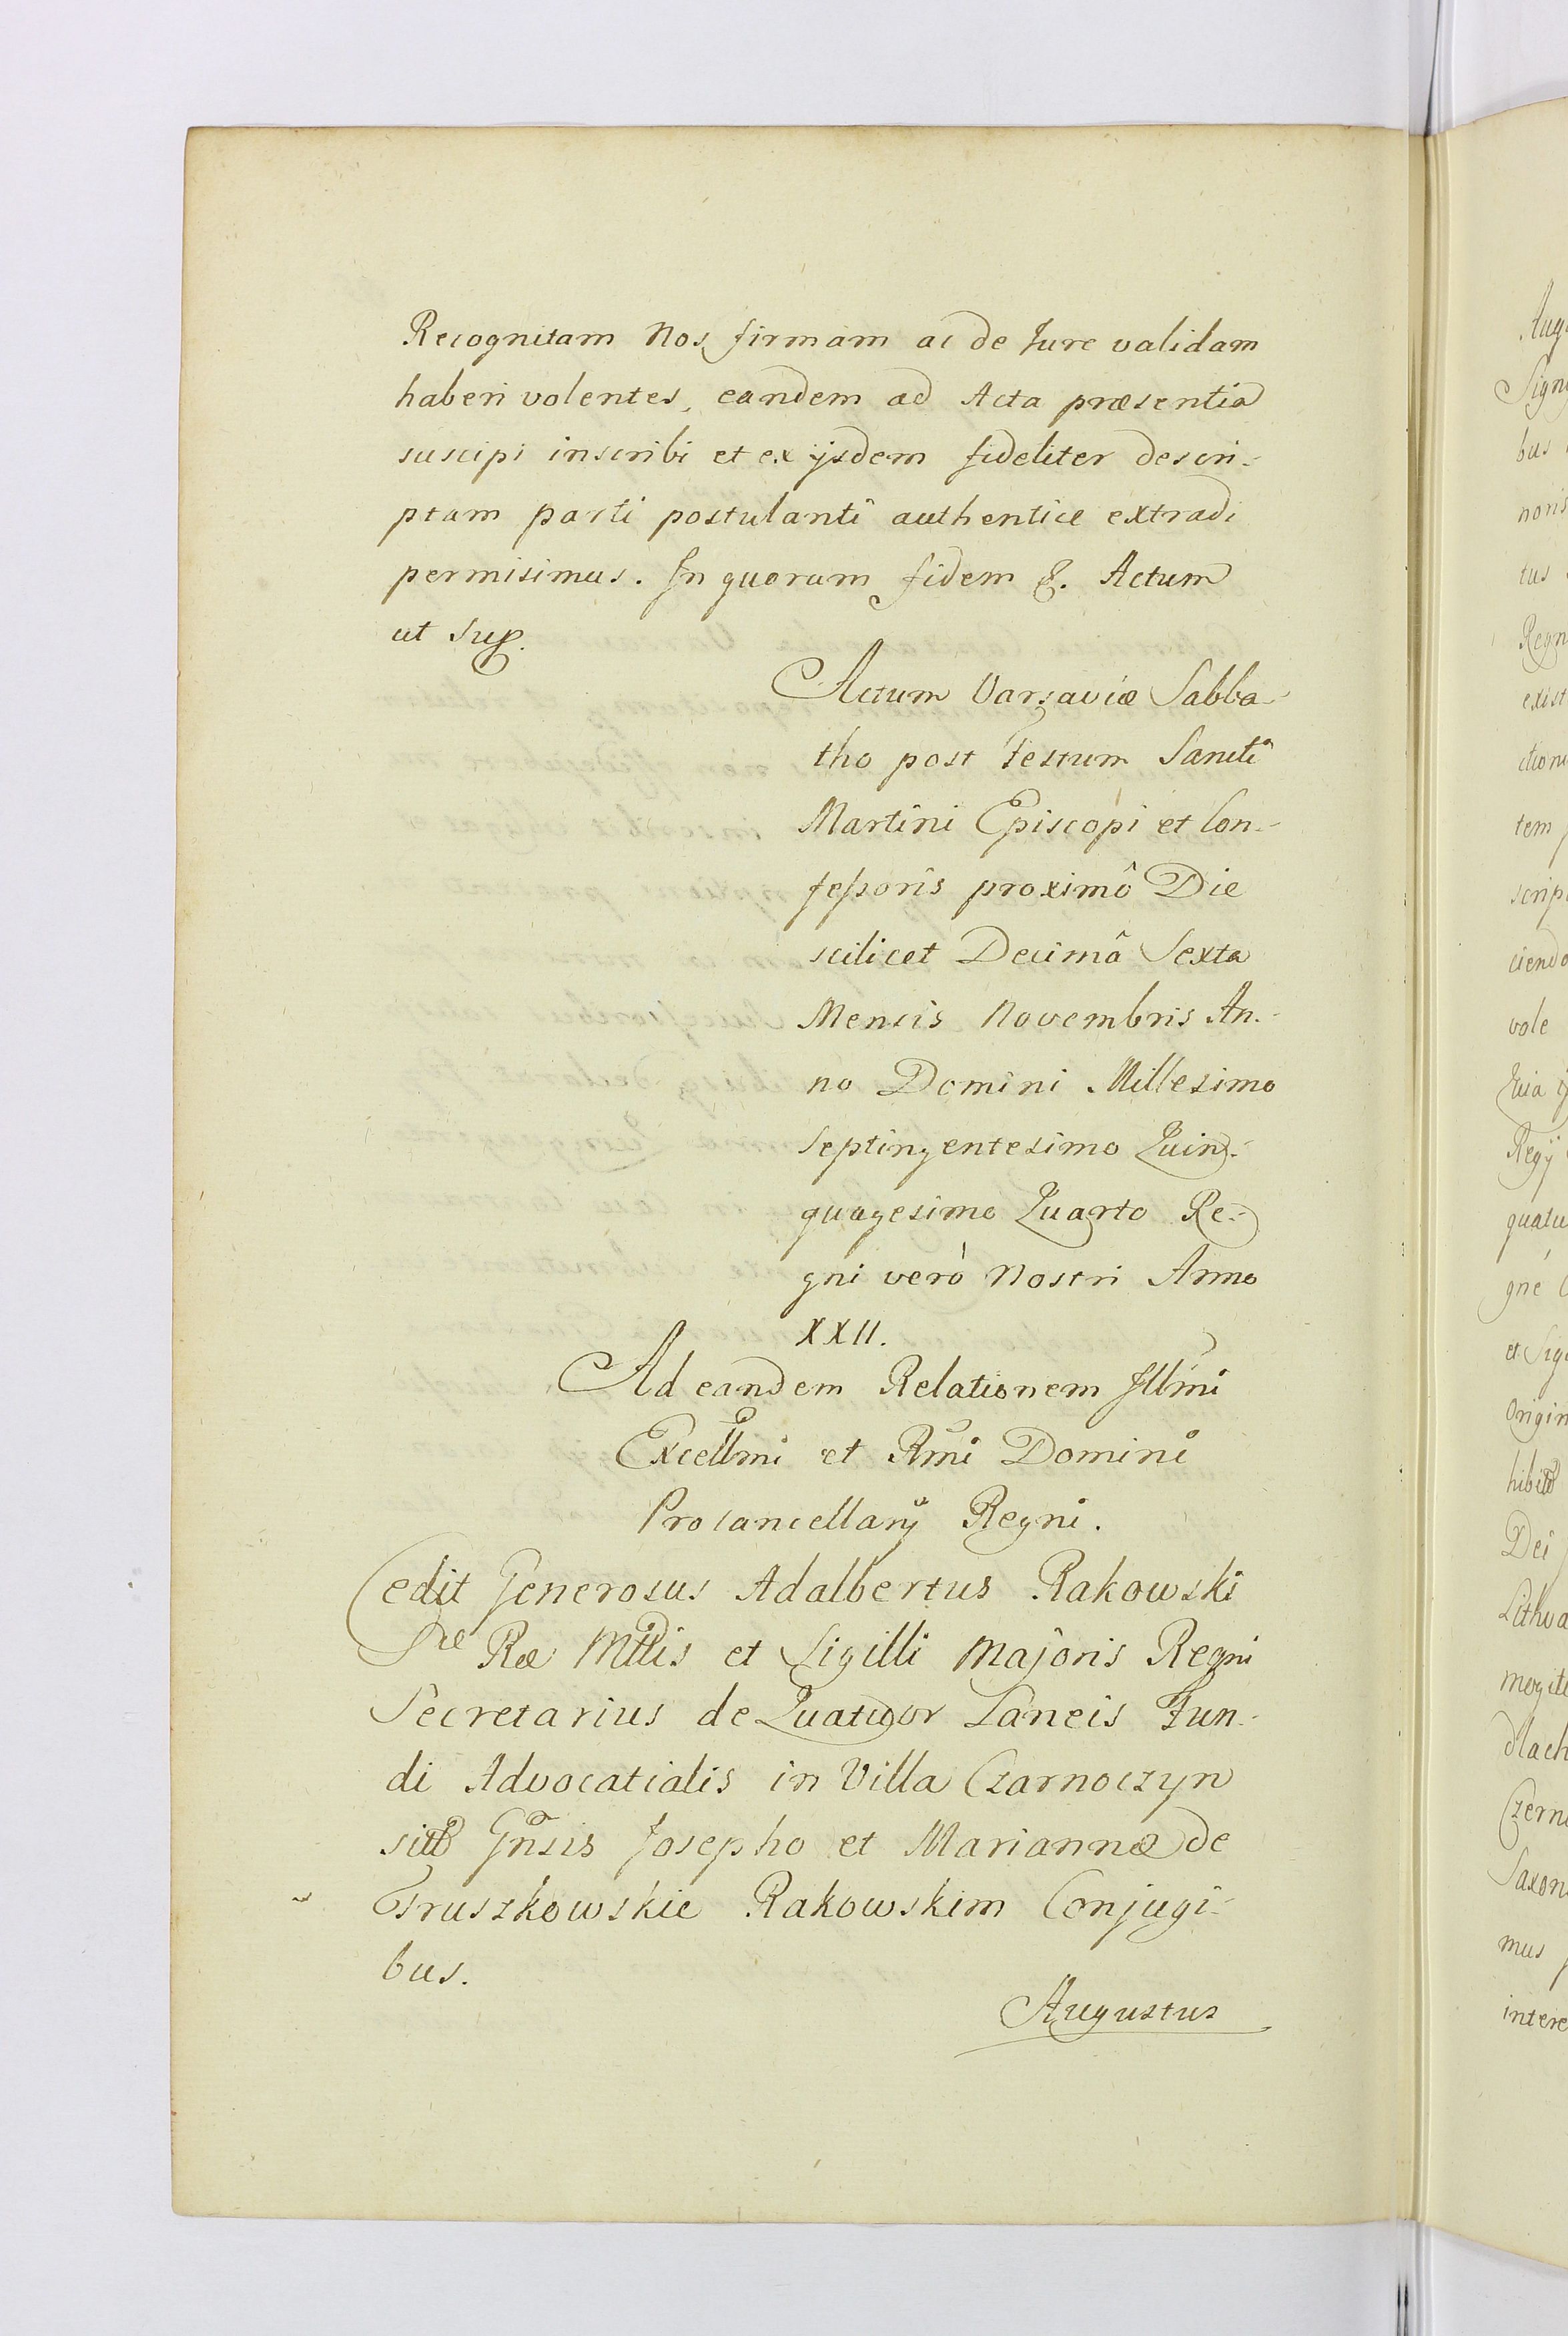 Recognitam Nos firmam ac de Jure validam
haberi volentes, eandem ad Acta præsentia
suscipi inscribi et ex ijsdem fideliter descri-
ptam parti postulanti authentice extradi
permisimus. In quorum fidem &. Actum
ut sup.
Actum Varsaviæ Sabba-
tho post Festum Sancti
Martini Episcopi et Con-
feßoris proximô Die
scilicet Decimâ Sexta
Mensis Novembris An-
no Domini Millesimo
Septingentesimo Quin-
quagesimo Quarto Re-
gni verò Nostri Anno
XXII.
Ad eandem Relationem Illmi
Excellmi et Rmi Domini
Procancellarij Regni.
Cedit Generosus Adalbertus Rakowski
Sæ Ræ Mttis et Sigilli Majoris Regni
Secretarius de Quatuor Laneis Fun-
di Advocatialis in Villa Czarnoczyn
Gnsis Josepho et Mariannæ de
Gruszkowskie Rakowskim Conjugi-
bus.
Augustus
Sign
bus
noris
tus
Regn
exist
ctione
tem
scrip
ciendo
vole
Regij
quatu
gne
et Sig
Origin
Dei
Lithua
dlach
Czern
Saxon
mus
intere